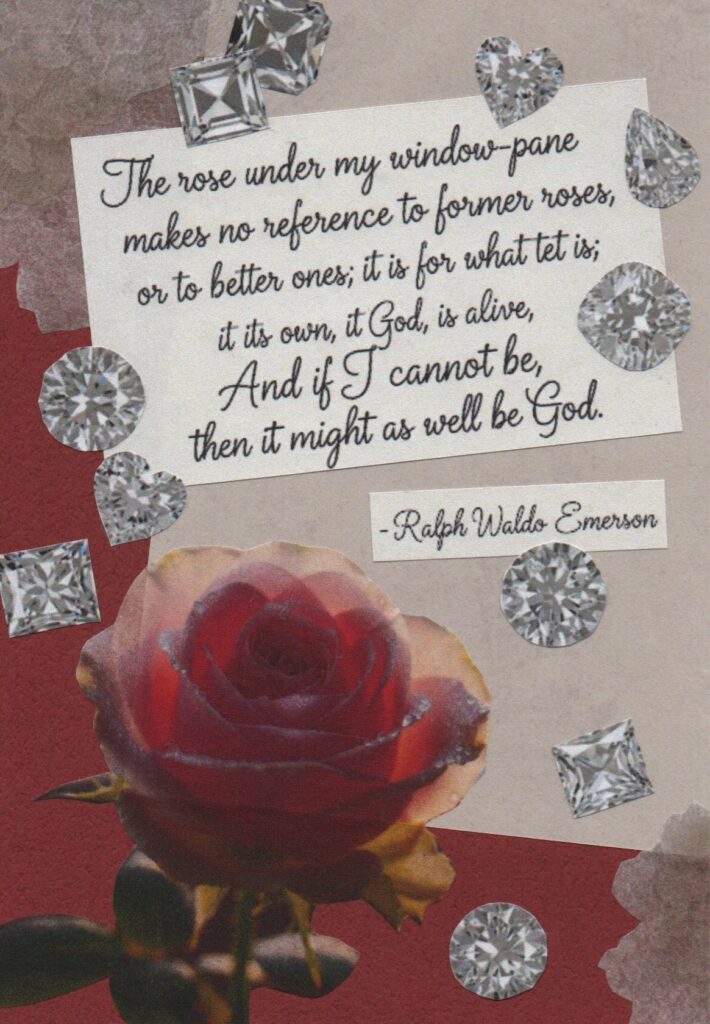 The rose under my window-pane
makes no reference to former roses,
or to better ones; it is for what tet is;
it its own, it God, is alive,
And if I cannot be,
then it might as well be God.
-Ralph Waldo Emerson